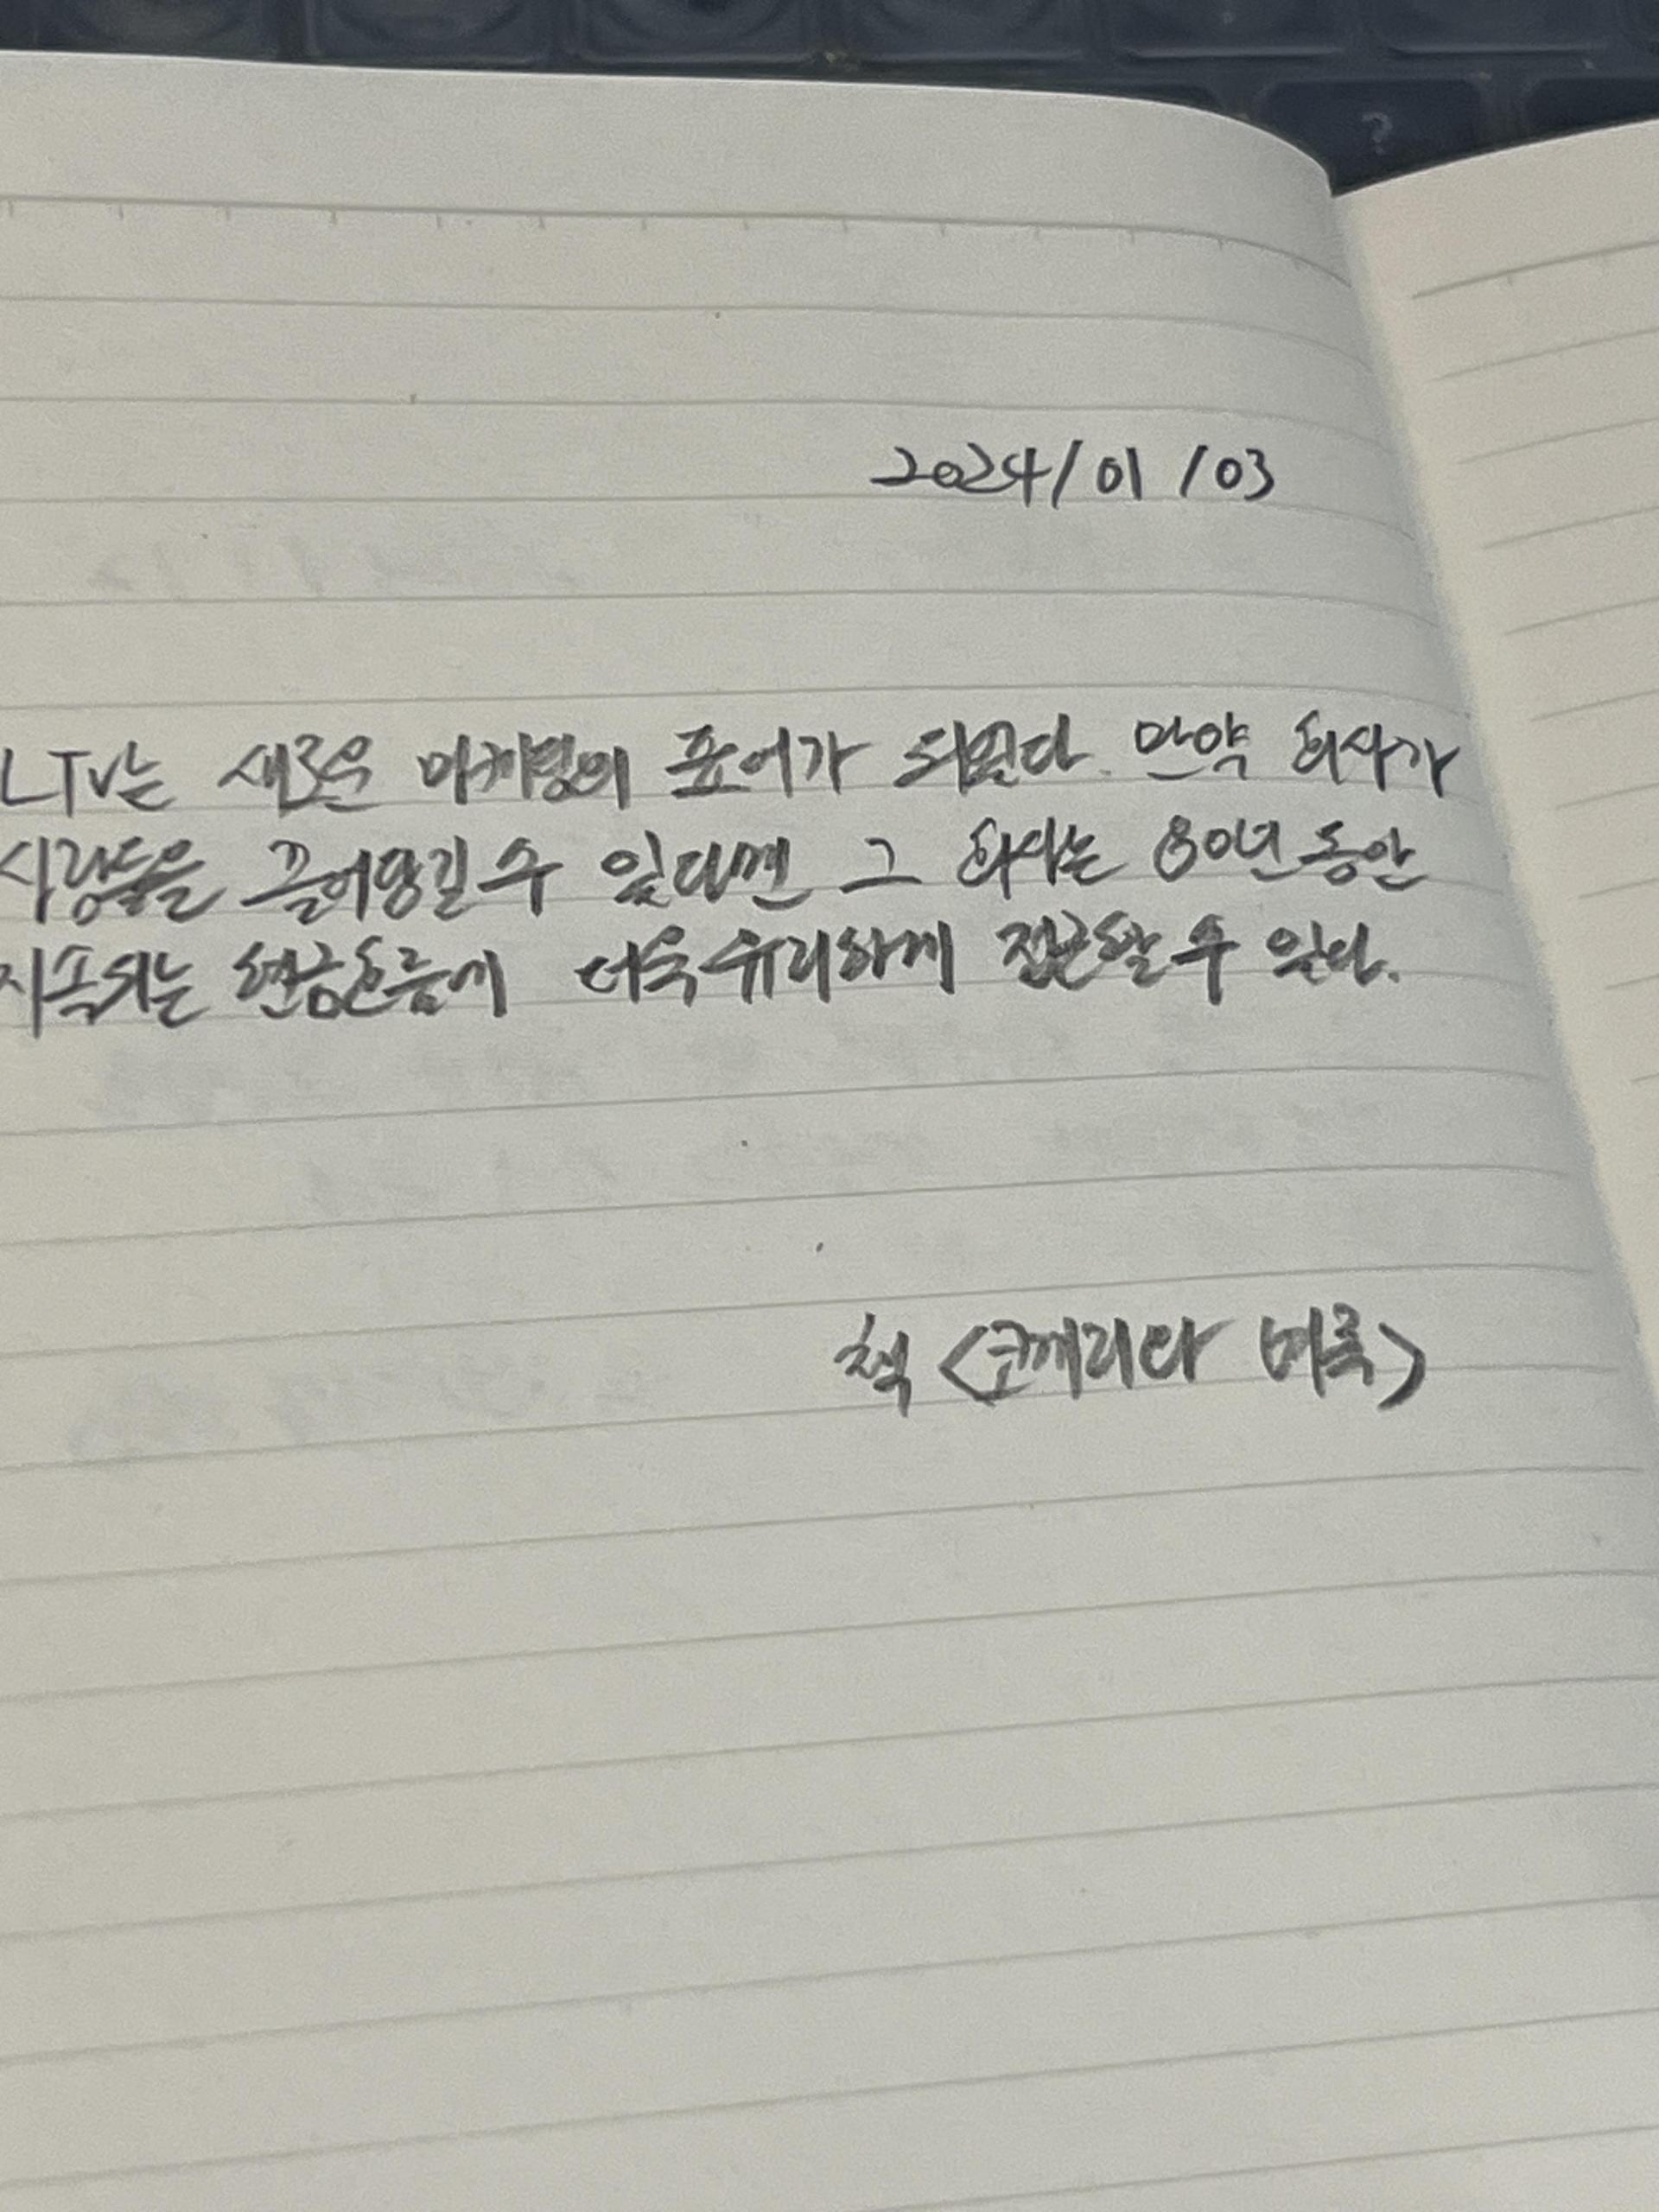 ?
2024/01/03
LTV는 새로운 마케팅의 표어가 되었다. 만약 회사가
사람들을 끌어당길 수 있다면 그 회사는 80년 동안
지속되는 현금흐름에 더욱 유리하게 접근할 수 있다.
책 <코끼리와 벼룩>